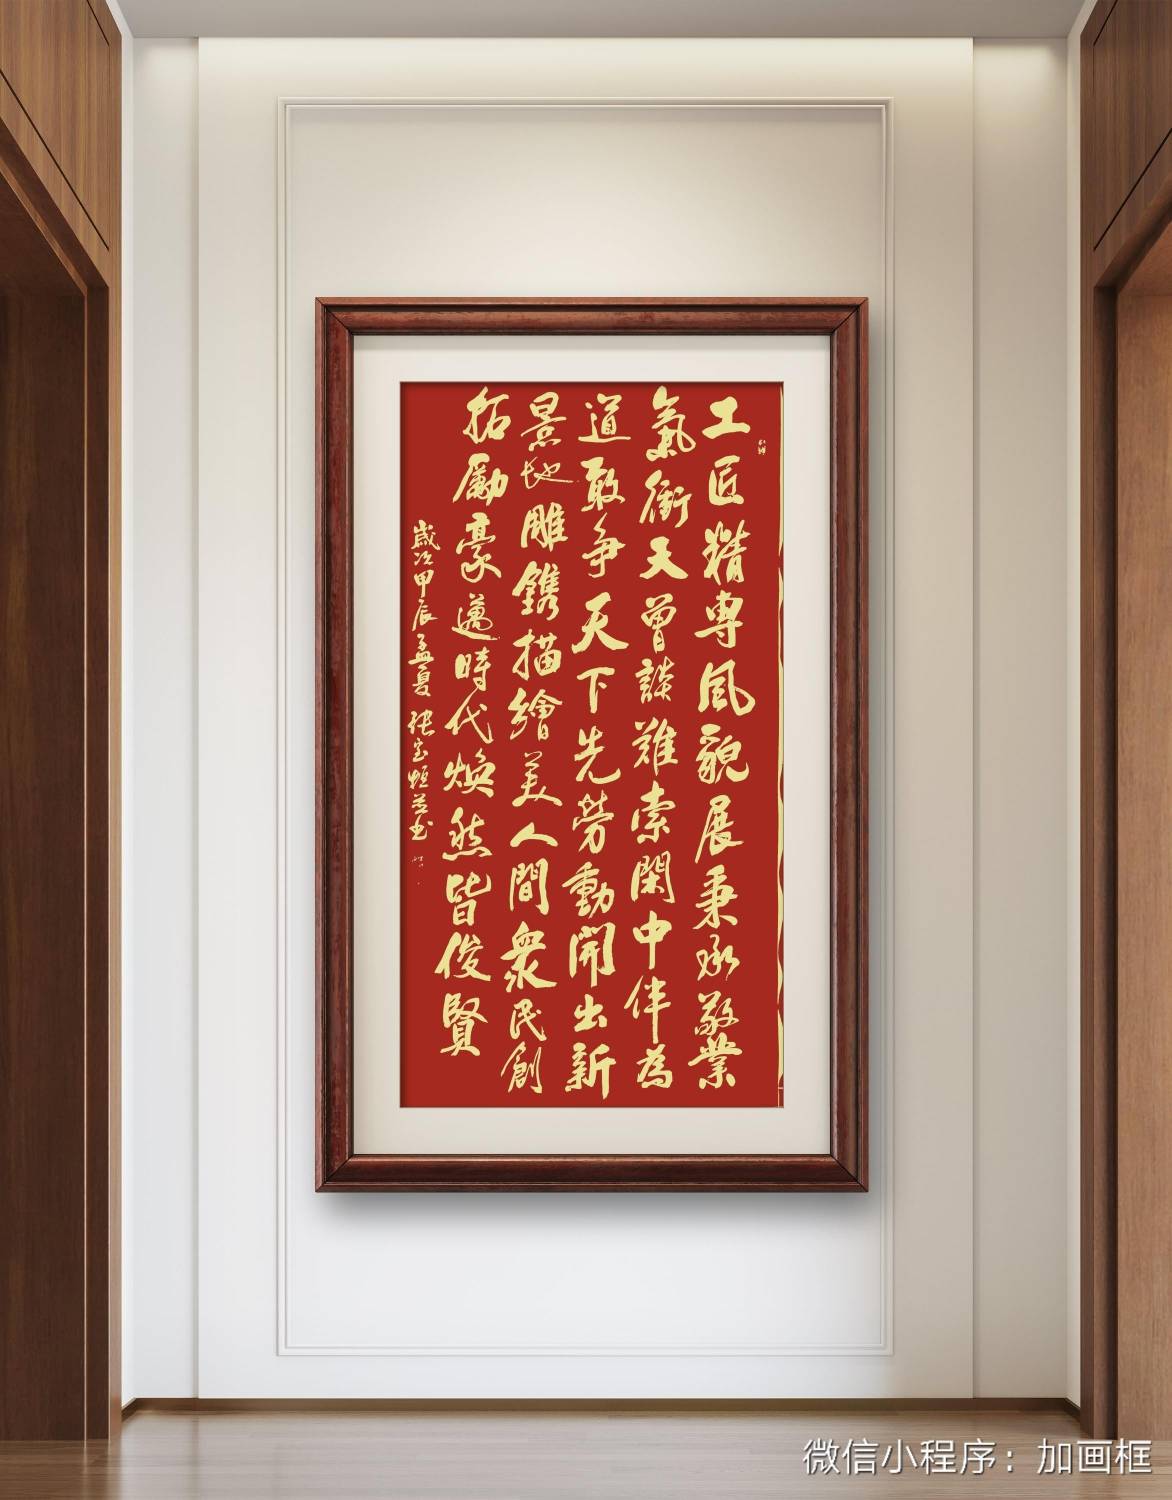 工匠精專風貌展秉承敬業
氣衝天曾談難索閑中伴為
道敢爭天下先勞動開出新
景地雕鐫描繪美人間衆民創
拓勵豪邁時代煥然皆俊賢
歲次甲辰孟夏張宝恒並书
微信小程序：加画框